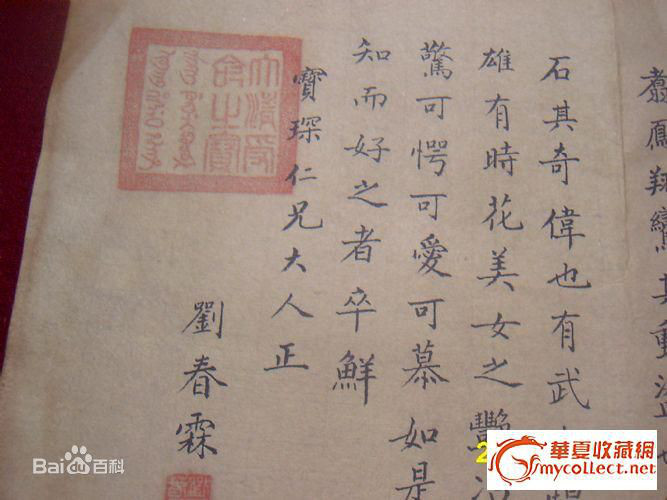 翥鳳翔鸞其動
石其奇偉也有武
雄有時花美女之艷
驚可愕可愛可慕如是
知而好之者卒鮮
寶琛仁兄大人正
劉春霖
大清受命之寶
Bai百科
華夏收藏網
mycollect.net